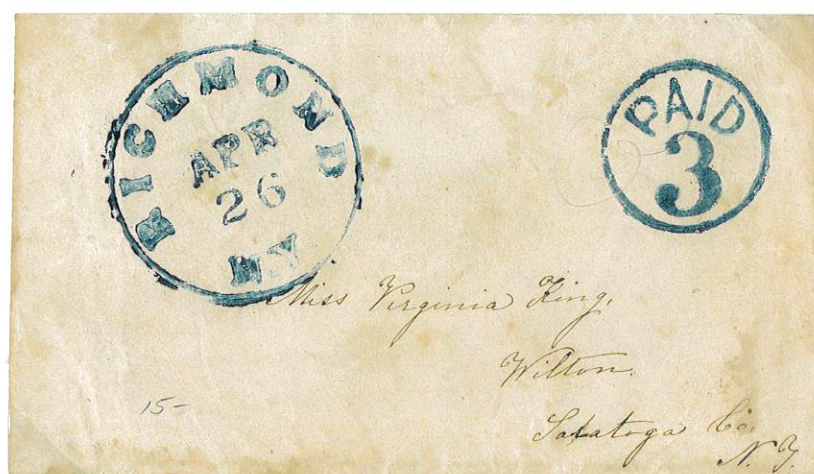 RICHMOND
APR
26
N.Y.
PAID
3
Miss Virginia King,
Wilton.
Saratoga Co.
N.Y.
15-